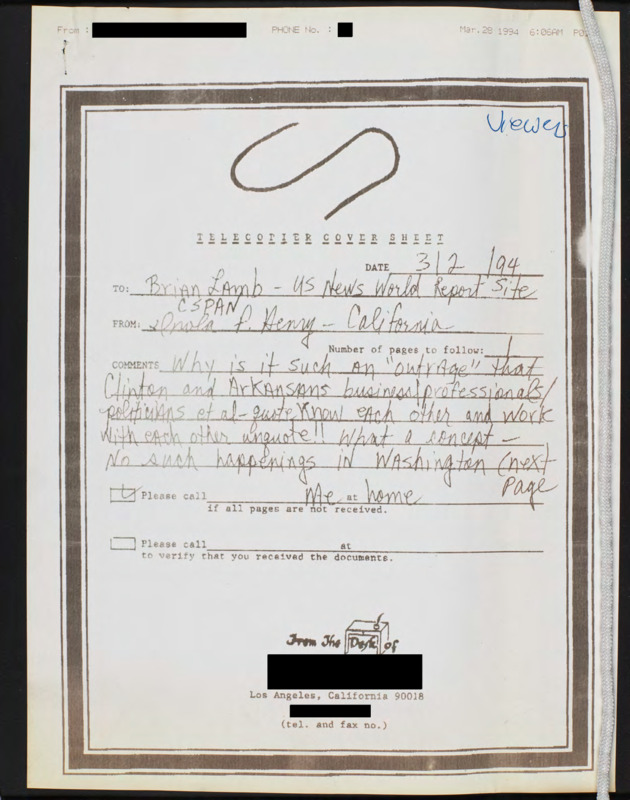 From : PHONE No. : Mar.28 1994 6:06AM P0
Viewer
TELECOPIER COVER SHEET
DATE 3/2 /94
TO: Brian Lamb - US News World Report Site
CSPAN
FROM: F. Henry - California
Number of pages to follow: 1
COMMENTS Why is it such an "outrage" that
Clinton and Arkansans business/professionals/
politicians et al- quote, know each other and work
with each other unquote!! What a concept -
No such happenings in Washington (next
Page
Please call Me at home
if all pages are not received.
Please call at
to verify that you received the documents.
From the Desk of
Los Angeles, California 90018
(tel. and fax no.)